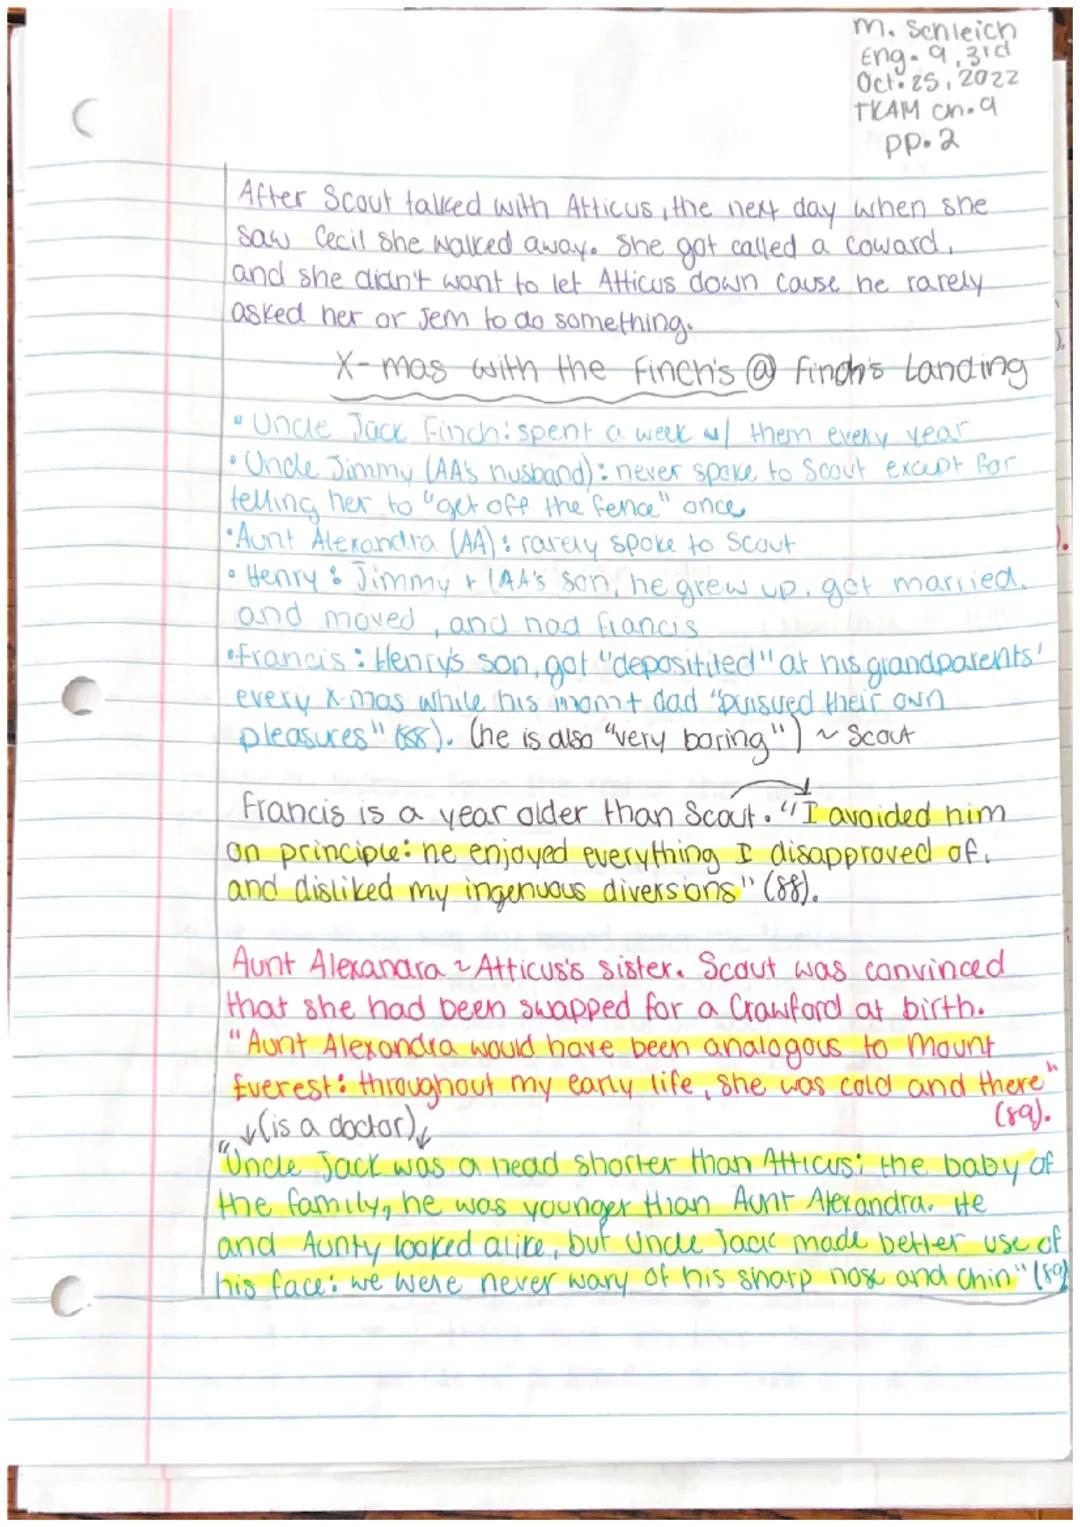 M. Schleich
Eng. 9, 3rd
Oct. 25, 2022
TKAM Ch. 9
pp. 2
After Scout talked with Atticus, the next day when she
saw Cecil she walked away. She got called a coward,
and she didn't want to let Atticus down cause he rarely
asked her or Jem to do something.
X-mas with the Finch's @ Finch's Landing
• Uncle Jack Finch: spent a week w/ them every year
• Uncle Jimmy (AA's husband): never spoke to Scout except for
telling her to "get off the fence" once
• Aunt Alexandra (AA): rarely spoke to Scout
• Henry: Jimmy + (AA's son, he grew up, got married,
and moved, and had Francis
• Francis: Henry's son, got "depositited" at his grandparents'
every X-mas while his mom + dad "pursued their own
pleasures" (88). (he is also "very boring") ~ Scout
Francis is a year older than Scout. "I avoided him
on principle: he enjoyed everything I disapproved of,
and disliked my ingenuous diversions" (88).
Aunt Alexandra ~ Atticus's sister. Scout was convinced
that she had been swapped for a Crawford at birth.
"Aunt Alexandra would have been analogous to Mount
Everest: throughout my early life, she was cold and there"
(89).
(is a doctor)
"Uncle Jack was a head shorter than Atticus; the baby of
the family, he was younger than Aunt Alexandra. He
and Aunty looked alike, but Uncle Jack made better use of
his face: we were never wary of his sharp nose and chin" (89)